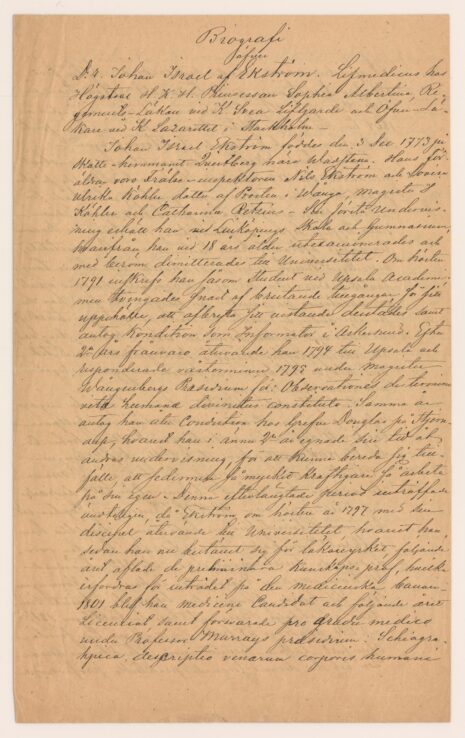 Biografi
öfver
D:r Johan Israel af Ekström. Lifmedicus hos
Högstsal. H. K. H. Prinsessan Sophia Albertina, Re-
gements-Läkare vid K. Svea Lifgarde och Öfver-Lä-
kare vid K. Lazarettet i Stockholm
Johan Israel Ekström föddes den 3 Dec 1773 på
Skatte-hemmanet Qvistberg nära Wadstena. Hans för-
äldrar voro Nils Ekström och
Ulrika Köhler dotter af Prosten i Wånga, Magister H
Köhler och Catharina Retzius - Sin första Undervis-
ning erhöll han vid Linköpings Skola och Gymnasium,
hvarifrån han vid 18 års ålder utexaminerades och
med beröm dimitterades till Universitetet. Om hösten
1791 inskrefs han såsom Student vid Upsala Academi
men tvingades snart af bristande tillgångar för sitt
uppehälle, att afbryta sitt vistande derstädes samt
antog Kondition som Informator i Askersund. Efter
2ne års frånvaro återvände han 1794 till Upsala och
responderade vårterminen 1795 under Magister
Wångenbergs Præsidium för: Observationes de termino
vitæ humanæ divinitus constituto. Samma år
antog han åter Condition hos Grefve Douglas på Stjern-
arp, hvarest han i ännu 2ne år egnade sin tid åt
andras undervisning, för att kunna bereda sig till-
fälle att sedermera få mycket kraftigare få arbeta
på sin egen. Denna efterlängtade period inträffade
ändtligen, då Ekström om hösten år 1797 med sin
discipel återvände till Universitetet, hvarest han,
sedan han nu bestämt sig för läkareyrket, följande
året aflade de preliminära kunskaps-prof, hvilka
erfordras för inträdet på den medicinska banan.
1801 blef han medicine Candidat och följande året
Licentiat samt försvarade pro gradu medico
under Professor Murrays præsidium: Schiagra-
phica descriptio venarum corporis humani